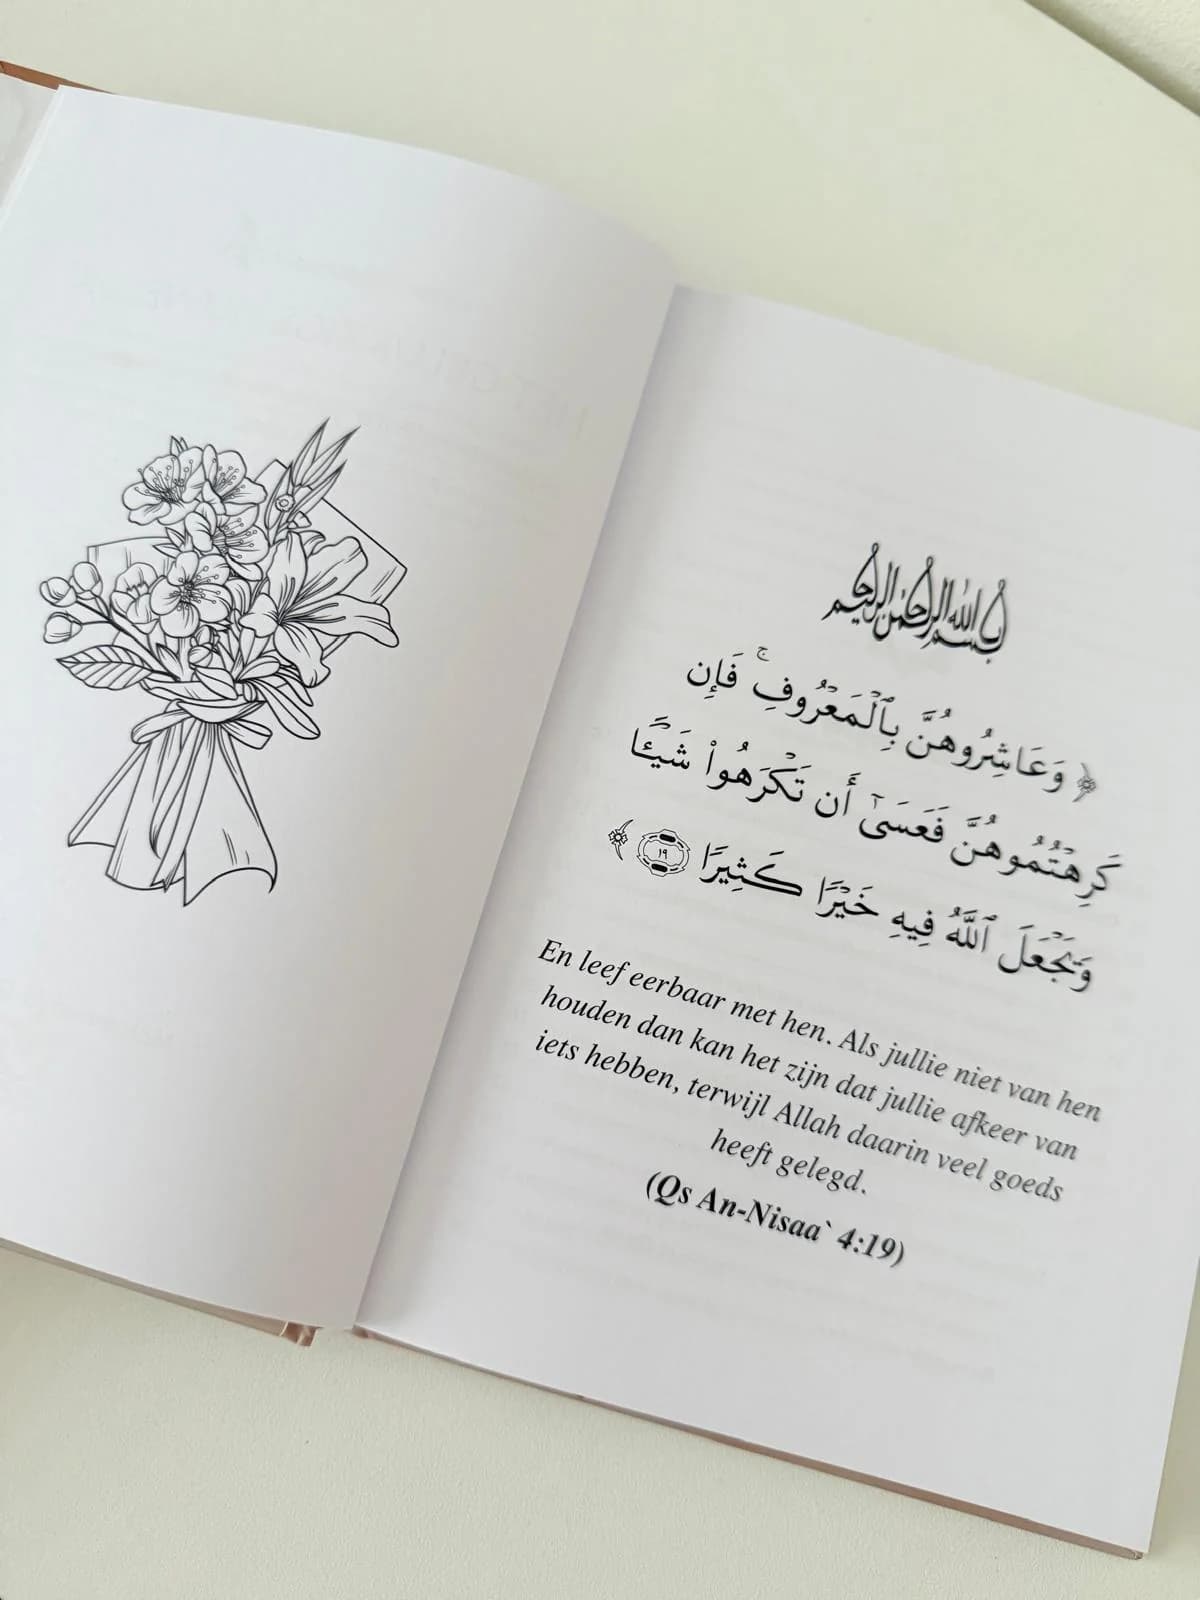 بسم الله الرحمن الرحيم
﴿ وَعَاشِرُوهُنَّ بِٱلْمَعْرُوفِ ۚ فَإِن
كَرِهْتُمُوهُنَّ فَعَسَىٰٓ أَن تَكْرَهُوا۟ شَيْـًٔا
وَيَجْعَلَ ٱللَّهُ فِيهِ خَيْرًا كَثِيرًا ١٩ ﴾
En leef eerbaar met hen. Als jullie niet van hen
houden dan kan het zijn dat jullie afkeer van
iets hebben, terwijl Allah daarin veel goeds
heeft gelegd.
(Qs An-Nisaa` 4:19)